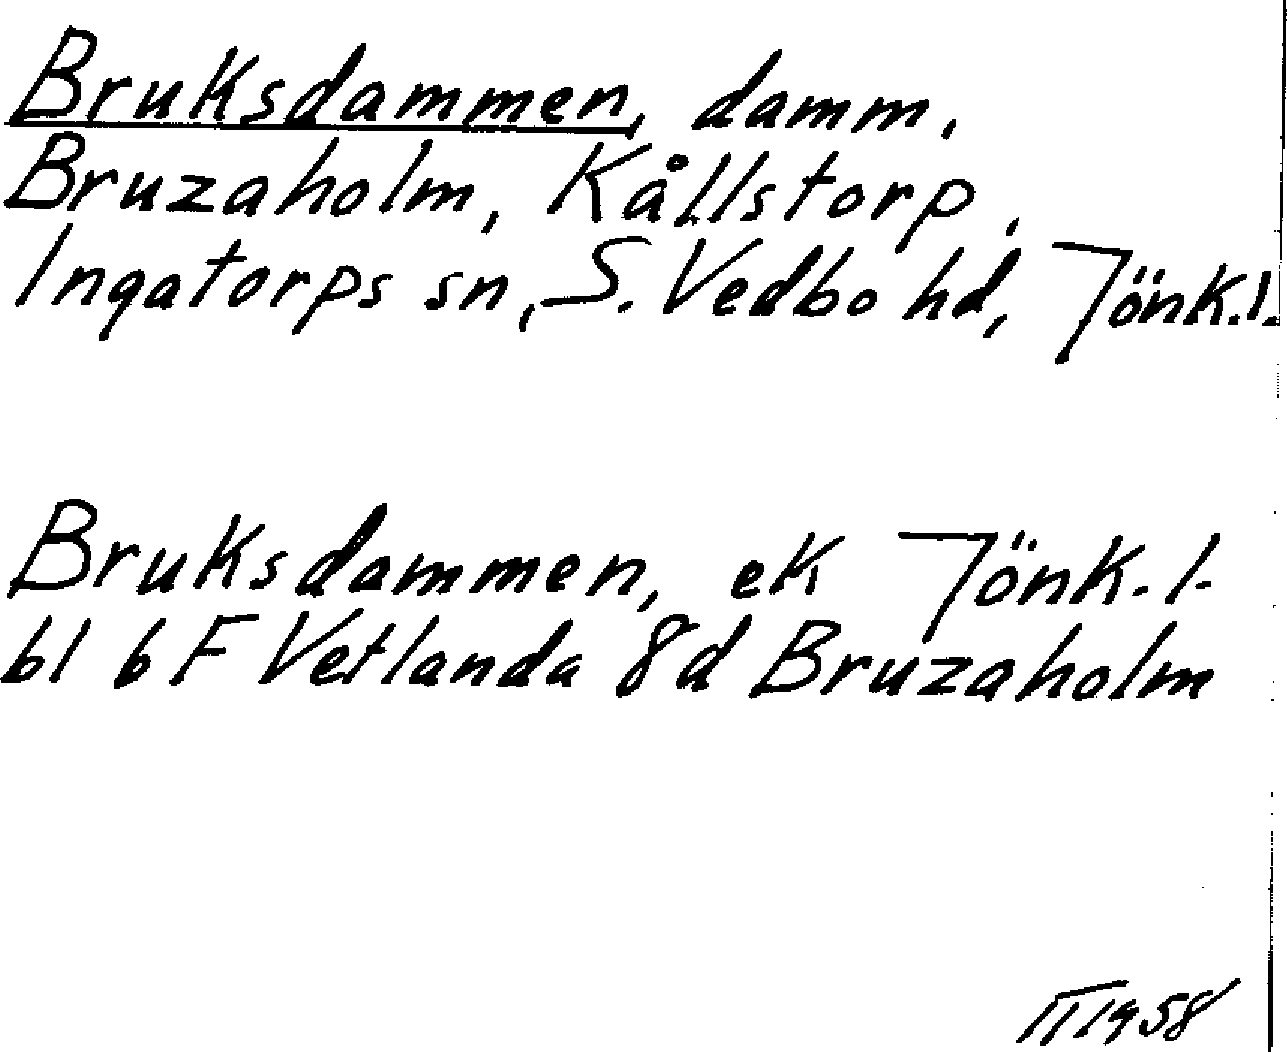 Bruksdammen, damm.
Bruzaholm, Kållstorp,
Ingatorps sn, S. Vedbo hd, Jönk.l.
Bruksdammen, ek Jönk.l.
bl 6 F Vetlanda 8d Bruzaholm
1958